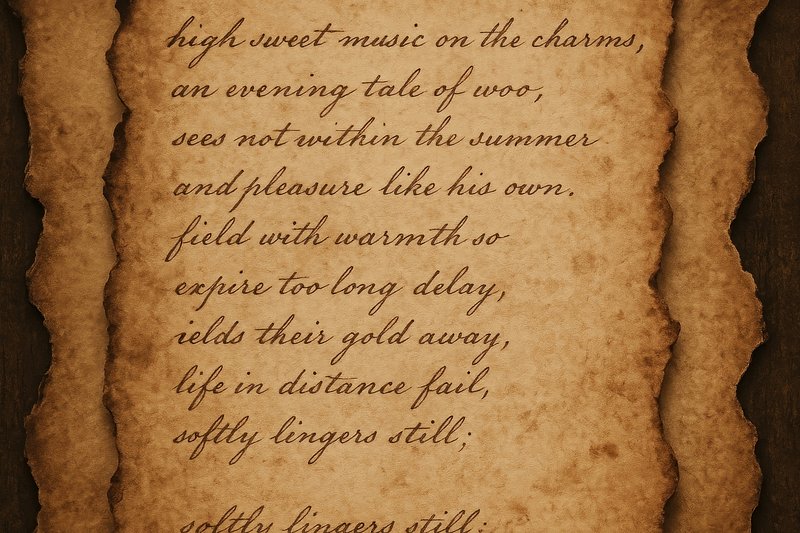 high sweet music on the charms,
an evening tale of woo,
sees not within the summer
and pleasure like his own.
field with warmth so
expire too long delay,
ields their gold away,
life in distance fail,
softly lingers still;
softly lingers still;